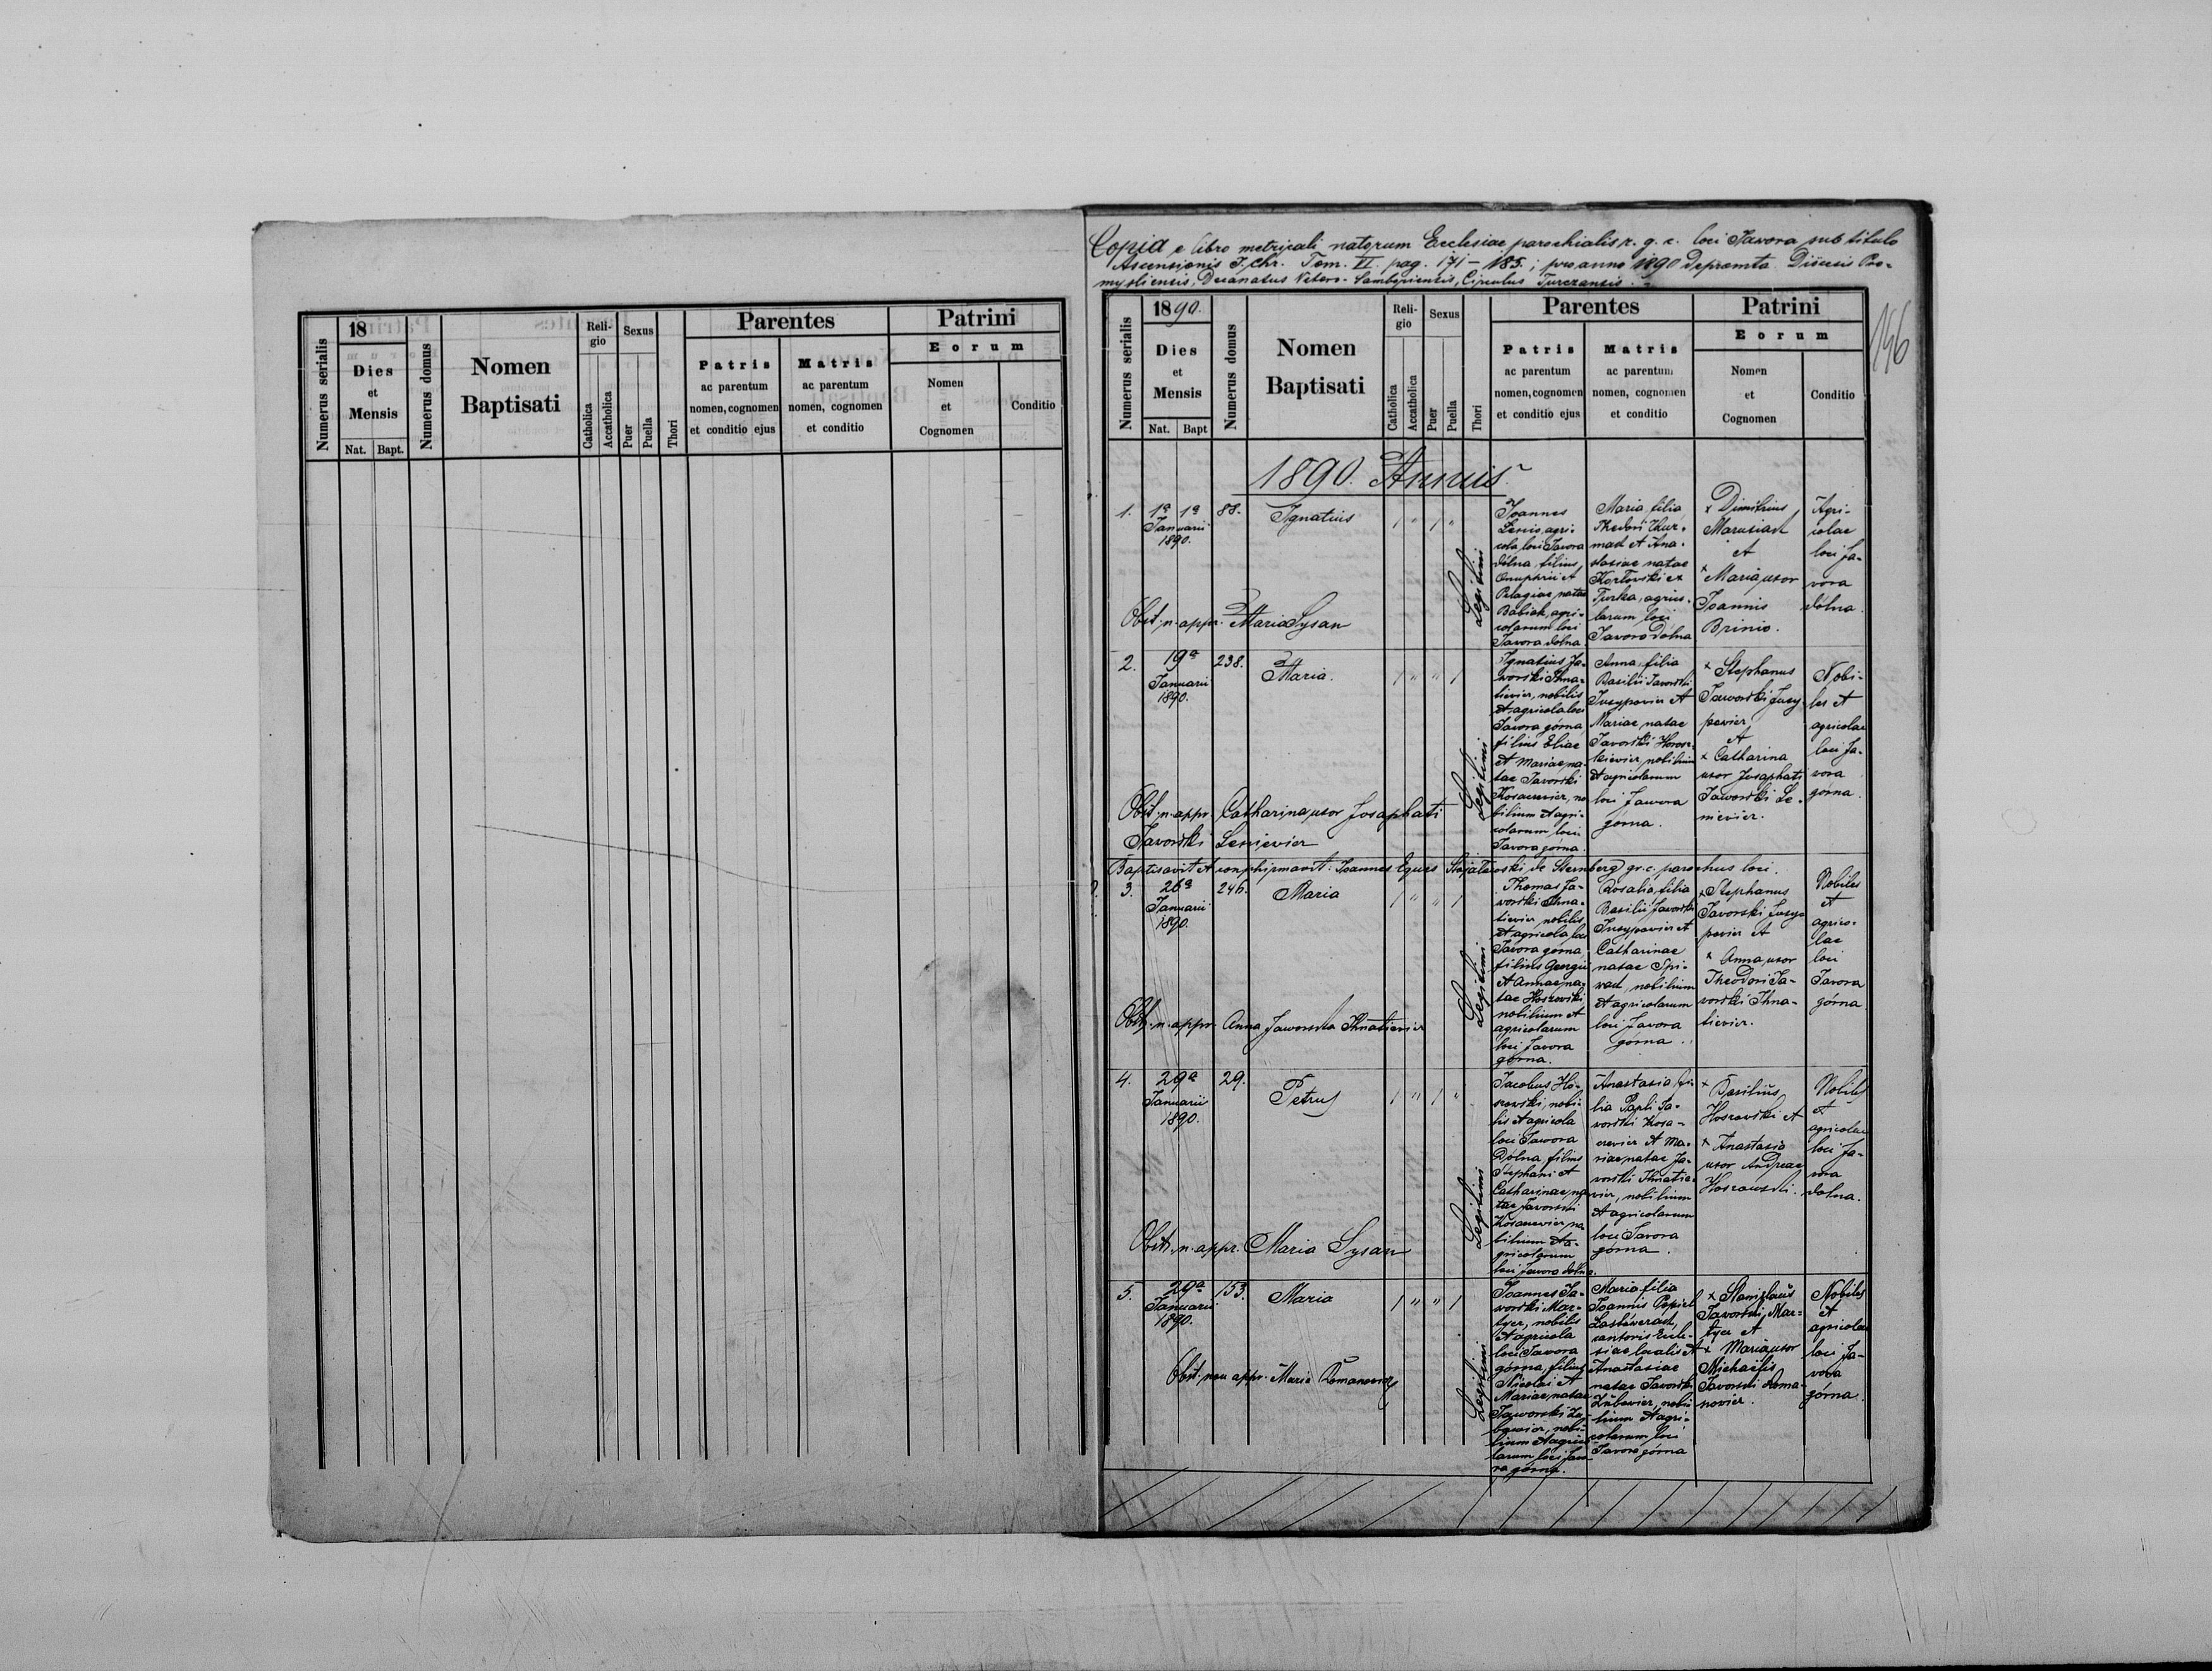 18
Numerus serialis
Dies
et
Mensis
Nat. Bapt.
Numerus domus
Nomen
Baptisati
Reli-
gio
Catholica
Accatholica
Sexus
Puer
Puella
Thori
Parentes
Patris
ac parentum
nomen, cognomen
et conditio ejus
Matris
ac parentum
nomen, cognomen
et conditio
Patrini
Eorum
Nomen
et
Cognomen
Conditio
Copia e libro metricali natorum Ecclesiae parochialis r. g. c. loci Jawora sub titulo
Ascensionis J. Chr. Tom. VI. pag. 171-185; pro anno 1890 depromta. Diöcesis Pre-
mysliensis, Decanatus Vetero-Samboriensis, Circulus Turczansis.
146
1890.
Numerus serialis
Dies
et
Mensis
Nat. Bapt
Numerus domus
Nomen
Baptisati
Reli-
gio
Catholica
Accatholica
Sexus
Puer
Puella
Thori
Parentes
Patris
ac parentum
nomen, cognomen
et conditio ejus
Matris
ac parentum
nomen, cognomen
et conditio
Patrini
Eorum
Nomen
et
Cognomen
Conditio
1890. Annus
1.
1a 1a
Januarii
1890.
88.
Ignatius
1 " 1 "
Legitimi
Joannes
agri-
cola loci Javora
dólna, filius
Onuphrii et
Pelagiae natae
Babiak, agri-
colarum loci
Javora dolna
Maria, filia
Theodori
et Ana-
stasiae natae
Kozłovski ex
Turka, agrico-
larum loci
Javora dólna
x Dimitrius
Marusiak
et
x Maria, uxor
Joannis
Brinio.
Agri-
colae
loci Ja-
vora
dólna.
Obst. n. appr. Maria Sysan
2.
19a
Januarii
1890.
238.
Maria.
1 " " 1
Legitimi
Ignatius Ja-
worski Ihna-
tievicz, nobilis
et agricola loci
Javora górna
filius Eliae
et Mariae na-
tae Javorski
Kosacevicz, no-
bilium et agri-
colarum loci
Javora gorna.
Anna, filia
Basilii Javorski
Jusypovicz et
Mariae natae
Javorski
nobilium
et agricolarum
loci Jawora
górna.
x Stephanus
Jaworski Jusy
povicz
et
x Catharina
uxor Josaphati
Jaworski Le-
nievicz.
Nobi-
les et
agricolae
loci Ja-
vora
górna.
Obst. n. appr. Catharina, uxor Josaphati
Javorski
Baptisavit et confirmavit: Joannes Eques de Sternberg gr. c. parochus loci.
3.
26a
Januarii
1890.
246.
Maria
1 " " 1
Legitimi
Thomas Ja-
vorski Ihna-
tievicz nobilis
et agricola loci
Javora gorna
filius Georgii
et Annae na-
tae Hoszovski,
nobilium et
agricolarum
loci Javora
górna.
Rosalia, filia
Basilii Javorski
Jusypovicz et
Catharinae
natae Spi-
vak, nobilium
et agricolarum
loci Javora
górna.
x Stephanus
Javorski Jusy-
povicz et
x Anna, uxor
Theodori Ja-
vorski Ihna-
tievicz.
Nobiles
et
agrico-
lae
loci
Javora
górna
Obst. n. appr. Anna Jaworska Ihnatievicz
4.
29a
Januarii
1890.
29.
Petrus
1 " 1 "
Legitimi
Jacobus Ho-
szowski, nobi-
lis et agricola
loci Jawora
Dólna, filius
Stephani et
Catharinae na-
tae Javorski
Kosacevicz no
bilium et a-
gricolarum
loci Javora dolna.
Anastasia, fi-
lia Pauli Ja-
vorski Kosa-
cevicz et Ma-
riae natae Ja-
vorski Ihnatie-
vicz, nobilium
et agricolarum
loci Javora
górna.
x Basilius
Hoszovski et
x Anastasia
uxor Andreae
Hoszowski.
Nobiles
et
agricolae
loci Ja-
vora
dolna.
Obst. n. appr. Maria Sysan
5.
29a
Januarii
1890.
153.
Maria
1 " " 1
Legitimi
Joannes Ja-
vorski Mar-
tycz, nobilis
et agricola
loci Javora
górna, filius
Nicolai et
Mariae natae
Jaworski Zu-
bewicz, nobi-
lium et agrico-
larum loci Javo-
ra górna.
Maria filia
Joannis Popiel
cantoris Eccle-
siae localis et
Anastasiae
natae Javorski
Zubevicz, nobi-
lium et agri-
colarum loci
Javora górna
x Stanislaus
Javorski, Mar-
tycz et
x Maria uxor
Michaëlis
Javorski Roma-
novicz.
Nobiles
et
agricolae
loci Ja-
vora
górna.
Obst. non appr. Maria Romanowicz